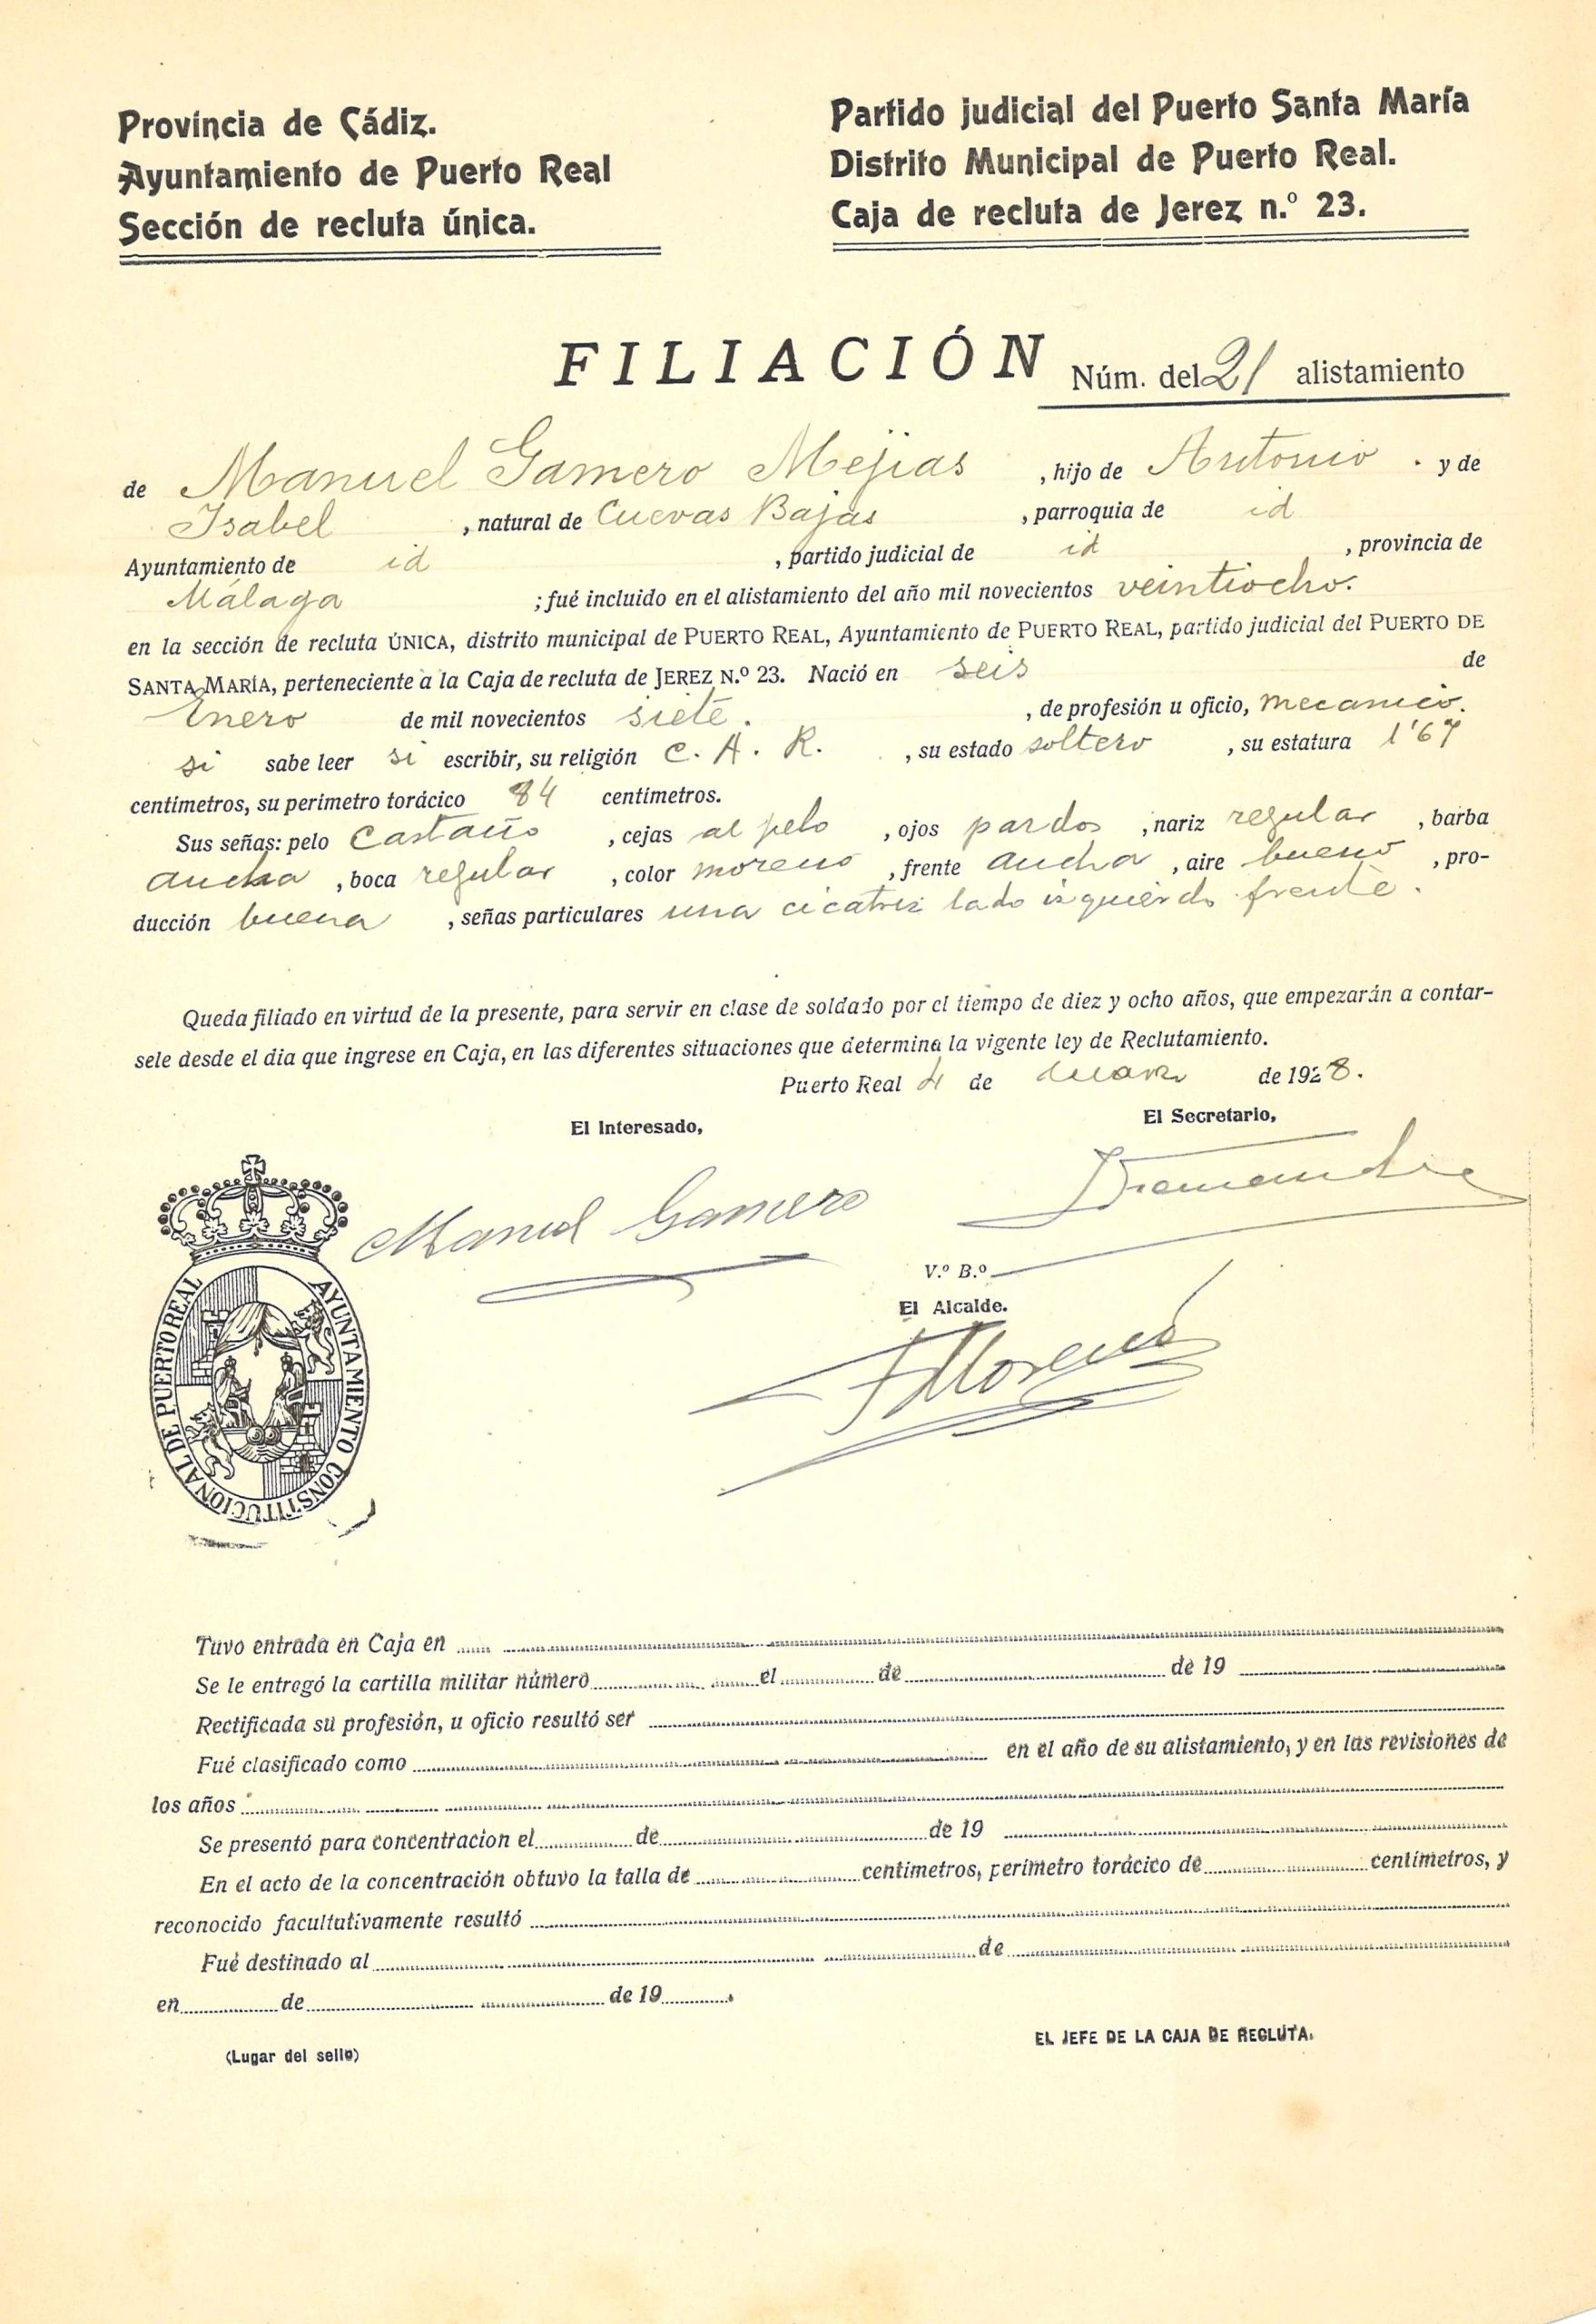 Provincia de Cádiz.
Ayuntamiento de Puerto Real
Sección de recluta única.
Partido judicial del Puerto Santa María
Distrito Municipal de Puerto Real.
Caja de recluta de Jerez n.º 23.
FILIACIÓN Núm. del 21 alistamiento
de Manuel Gamero Mejias, hijo de Antonio . y de
Isabel, natural de Cuevas Bajas, parroquia de id
Ayuntamiento de id, partido judicial de id, provincia de
Málaga; fué incluido en el alistamiento del año mil novecientos veintiocho.
en la sección de recluta ÚNICA, distrito municipal de PUERTO REAL, Ayuntamiento de PUERTO REAL, partido judicial del PUERTO DE
SANTA MARÍA, perteneciente a la Caja de recluta de JEREZ N.º 23. Nació en seis de
Enero de mil novecientos siete., de profesión u oficio, mecanico.
si sabe leer si escribir, su religión C. A. R., su estado soltero, su estatura 1'67
centímetros, su perímetro torácico 84 centímetros.
Sus señas: pelo Castaño, cejas al pelo, ojos pardos, nariz regular, barba
ancha, boca regular, color moreno, frente ancha, aire bueno, pro-
ducción buena, señas particulares una cicatriz lado izquierdo frente.
Queda filiado en virtud de la presente, para servir en clase de soldado por el tiempo de diez y ocho años, que empezarán a contar-
sele desde el dia que ingrese en Caja, en las diferentes situaciones que determina la vigente ley de Reclutamiento.
Puerto Real 4 de Marzo de 1928.
El Interesado,
El Secretario,
Manuel Gamero
V.º B.º
El Alcalde.
FMoreno
AYUNTAMIENTO CONSTITUCIONAL DE PUERTO REAL
Tuvo entrada en Caja en
Se le entregó la cartilla militar número el de de 19
Rectificada su profesión, u oficio resultó ser
Fué clasificado como en el año de su alistamiento, y en las revisiones de
los años
Se presentó para concentracion el de de 19
En el acto de la concentración obtuvo la talla de centímetros, perímetro torácico de centímetros, y
reconocido facultativamente resultó
Fué destinado al de
en de de 19
(Lugar del sello)
EL JEFE DE LA CAJA DE RECLUTA.